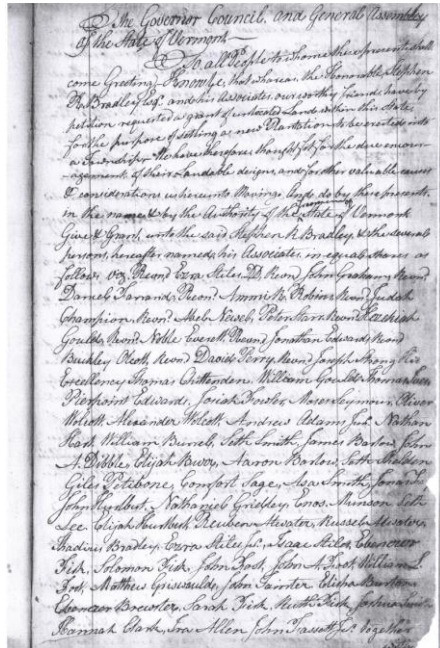 The Governor Council, and General Assembly
of the State of Vermont
To all People to whom these presents shall
come Greeting Know ye, that whereas the Honorable Stephen
R. Bradley Esqr. and his Associates our worthy friends have by
petition requested a grant of unlocated Land within this State
for the purpose of settling a new Plantation to be erected into
a Township. We have therefore thought fit for the due encour-
agement of their laudable designs, and for other valuable causes
& considerations us hereunto Moving, And do by these presents
in the name & by the Authority of the Freemen of the State of Vermont
Give & Grant unto the said Stephen R Bradley, & the several
persons, hereafter named, his Associates in equal shares as
follows viz. Revnd Ezra Stiles D.D. Revnd John Graham, Revnd
Daniel Farrand, Revnd Ammi R. Robins Revnd Judah
Champion, Revnd Abel Newel, Peter Starr Revnd Hezekiah
Gould, Revnd Noble Everett, Revnd Jonathan Edwards, Revnd
Buckley Olcott, Revnd David Perry, Revnd Joseph Strong His
Excellency Thomas Chittenden, William Gould, Thomas
Pierpoint Edwards, Josiah Fowler, Moses Seymour, Oliver
Wolcott, Alexander Wolcott, Andrew Adams Jur. Nathan
Hart, William Burrel, Seth Smith, James Barlow, John
A. Dibble, Elijah Aaron Barlow, Seth Sheldon
Giles Petibone, Comfort Sage, Asa Smith, Jonathan
John Hurlbut, Nathaniel Gridley, Enos Munson, Seth
Lee, Elijah Hurlbutt, Reuben Atwater, Russel Atwater,
Thadius Bradley, Ezra Stiles Jr. Isaac Stiles, Ebenezer
Fisk, Solomon Fisk, John Foot, John A. Foot, William L.
Foot, Matthew Griswauld, John Painter, Elisha Burton
Ebenezer Brewster, Sarah Fisk, Ruth Fisk, Joshua Smith
Hannah Clark, Ira Allen John Fassett Jr. together